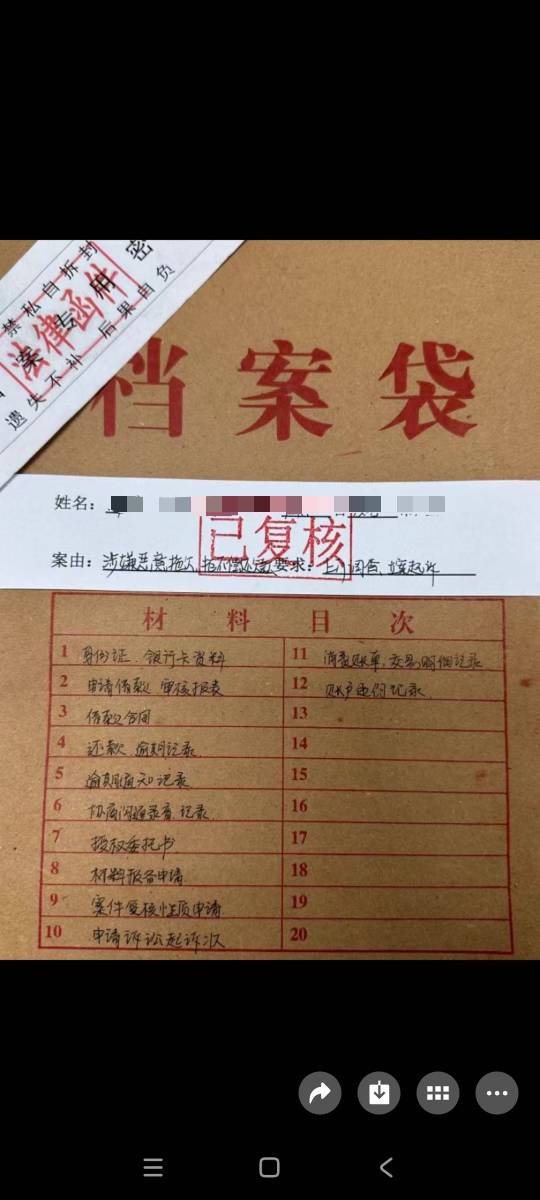 禁私自拆封
密
档案专用
法律函件
遗失不补 后果自负
档案袋
姓名：
已复核
案由：涉嫌恶意拖欠,拒不偿还欠款 要求：上门调查、立案起诉
材料目次
1 身份证、银行卡资料
2 申请借款 审核报表
3 借款合同
4 还款 逾期记录
5 逾期通知记录
6 协商沟通录音记录
7 授权委托书
8 材料报备申请
9 案件复核性质申请
10 申请诉讼起诉状
11 消费账单,交易明细记录
12 账户
记录
13
14
15
16
17
18
19
20